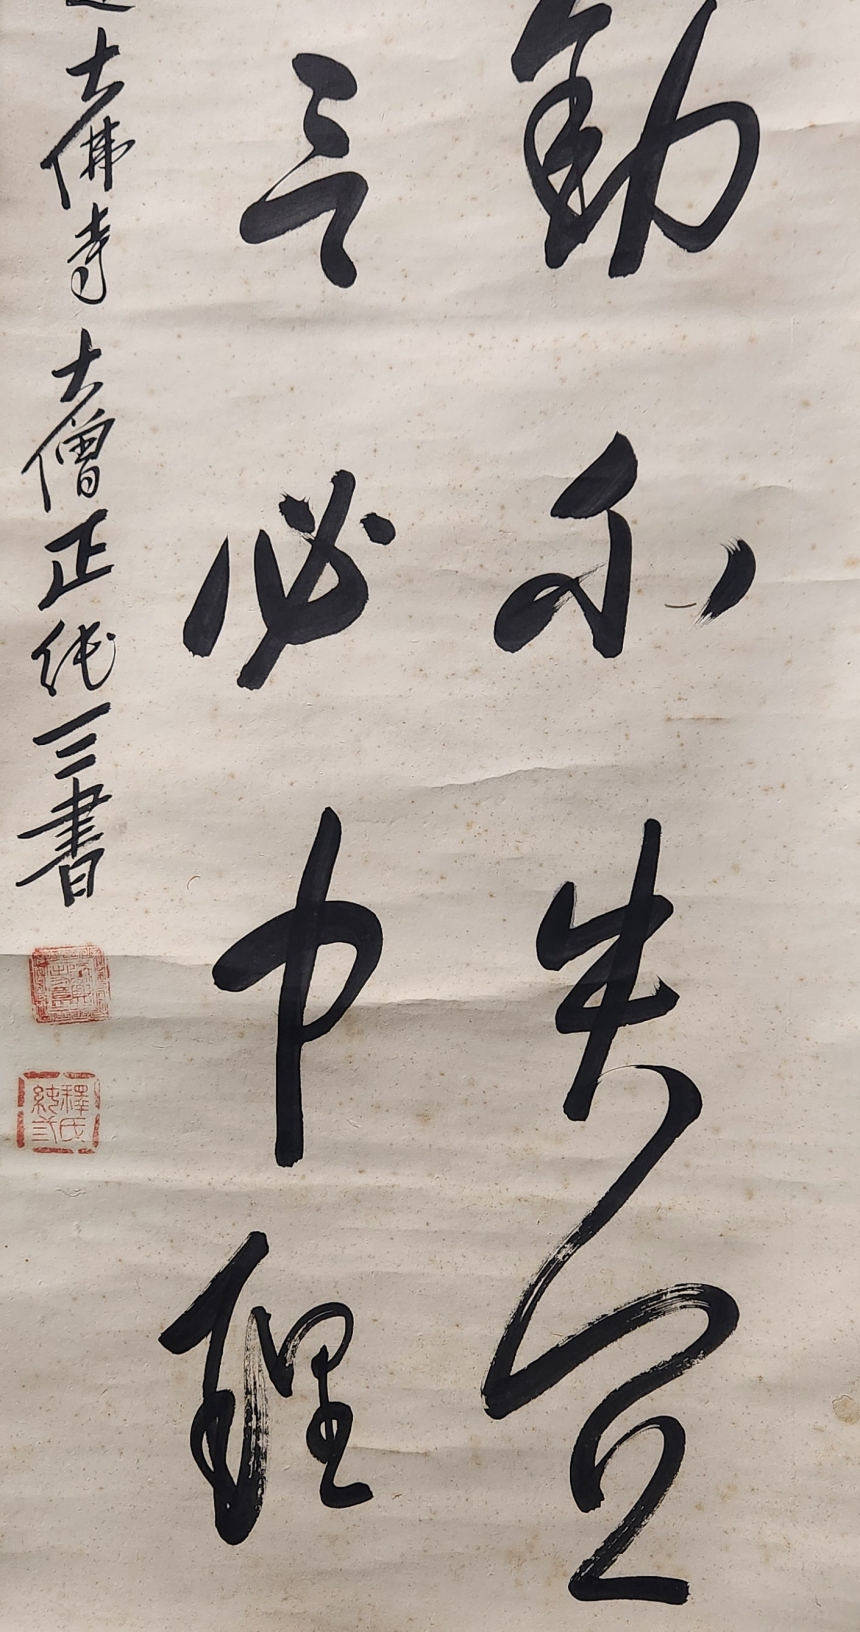 動不失宜
言必中理
大佛寺大僧正純三書
釋氏
純弎